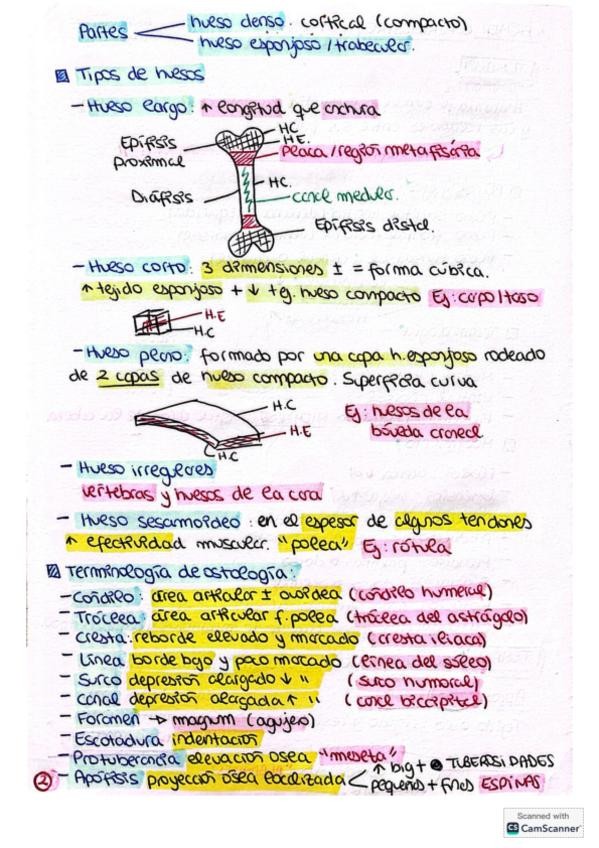 Partes
hueso denso. cortical (compacto)
hueso esponjoso/trabecular.
Tipos de huesos
- Hueso largo: ↑ longitud que anchura
HC
HE.
Epífisis
proximal
Placa/región metafisária
HC.
Diáfisis
canal medular.
Epífisis distal.
- Hueso corto: 3 dimensiones ± = forma cúbica.
↑ tejido esponjoso + ↓ tej. hueso compacto Ej: carpo/tarso
H.E
H.C
- Hueso plano: formado por una capa h.esponjoso rodeado
de 2 capas de hueso compacto. Superficie curva
H.C
Ej: huesos de la
H.E
bóveda craneal
H.C
- Hueso irregulares
vertebras y huesos de la cara
- Hueso sesamoideo: en el espesor de algunos tendones
↑ efectividad muscular. "polea" Ej: rótula
Terminología de ostología:
- Cóndilo: área articular ± ovoidea (cóndilo humeral)
- Tróclea: área articular f. polea (tróclea del astrágalo)
- Cresta: reborde elevado y marcado (cresta iliaca)
- Línea borde bajo y poco marcado (línea del sóleo)
- Surco depresión alargado ↓ " (surco humoral)
- Canal depresión alargada ↑ " (canal biccipital)
- Foramen → magnum (agujero)
- Escotadura indentación
- Protuberancia elevación osea "meseta"
- Apófisis proyección ósea localizada
↑ big + TUBEROSIDADES
pequeños + finos ESPINAS
2
Scanned with
CS CamScanner